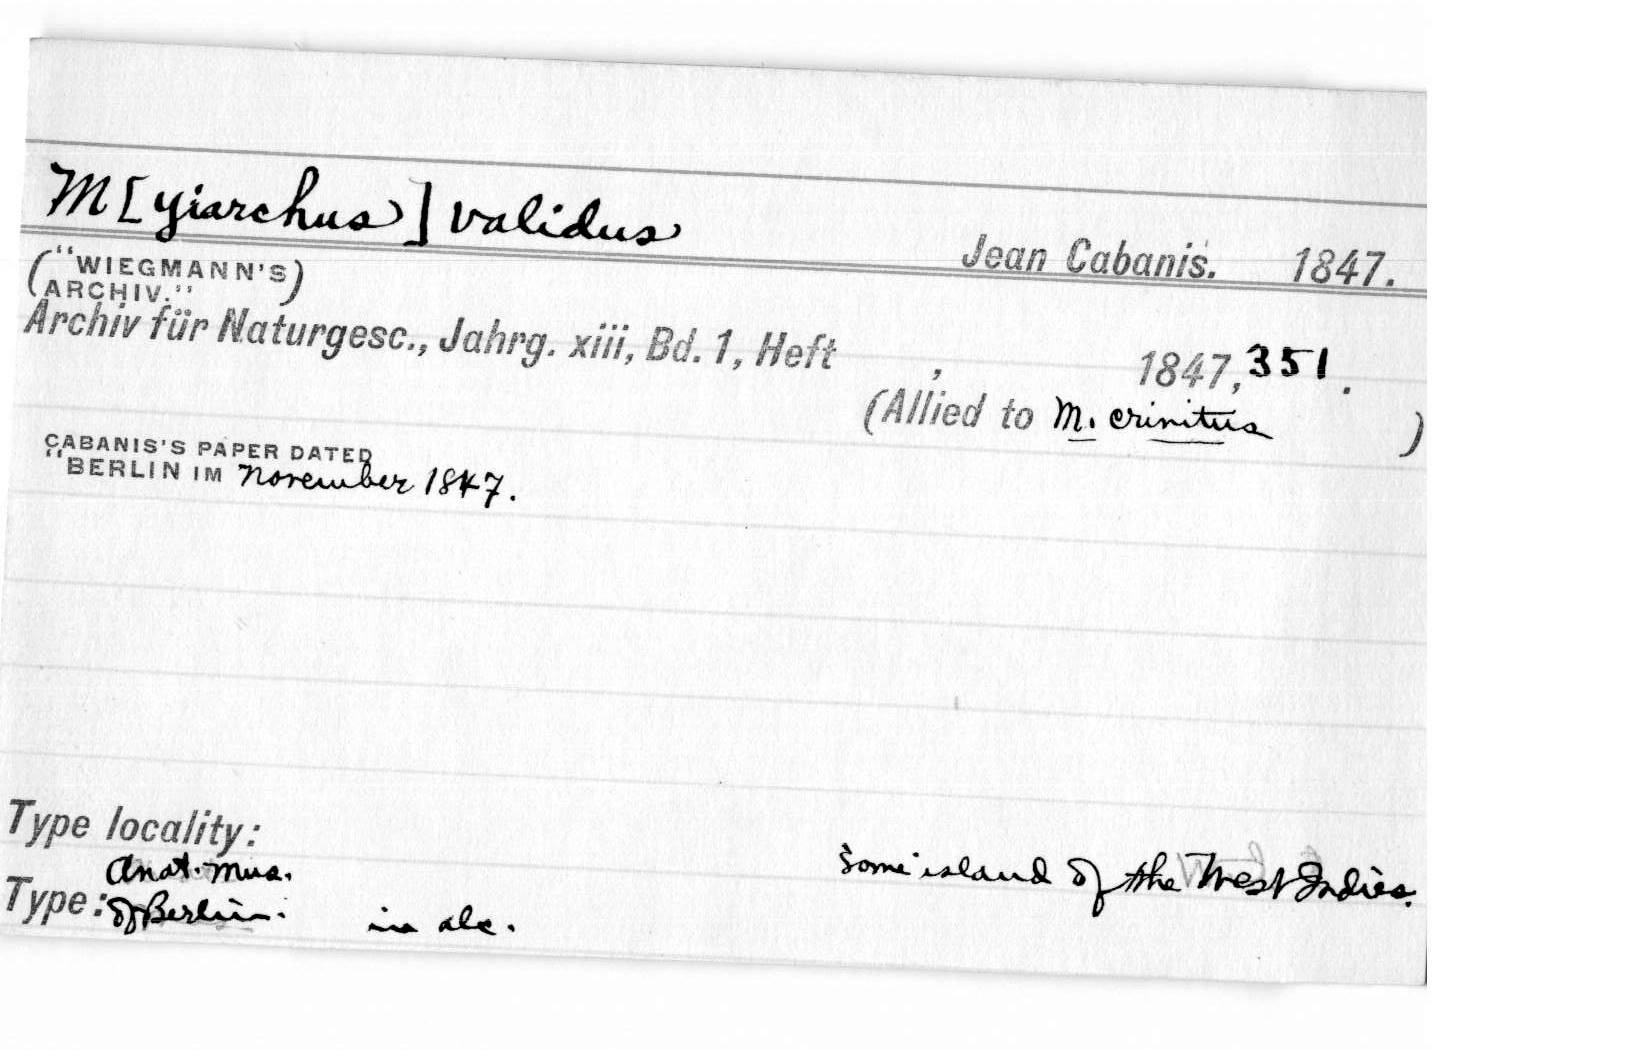 M[yiarchus] validus
Jean Cabanis. 1847.
("WIEGMANN'S
ARCHIV.")
Archiv für Naturgesc., Jahrg. xiii, Bd. 1, Heft , 1847, 351.
(Allied to M. crinitus )
CABANIS'S PAPER DATED
"BERLIN IM November 1847.
Type locality:
Some island of the West Indies.
Anat. Mus.
Type: of Berlin. in alc.